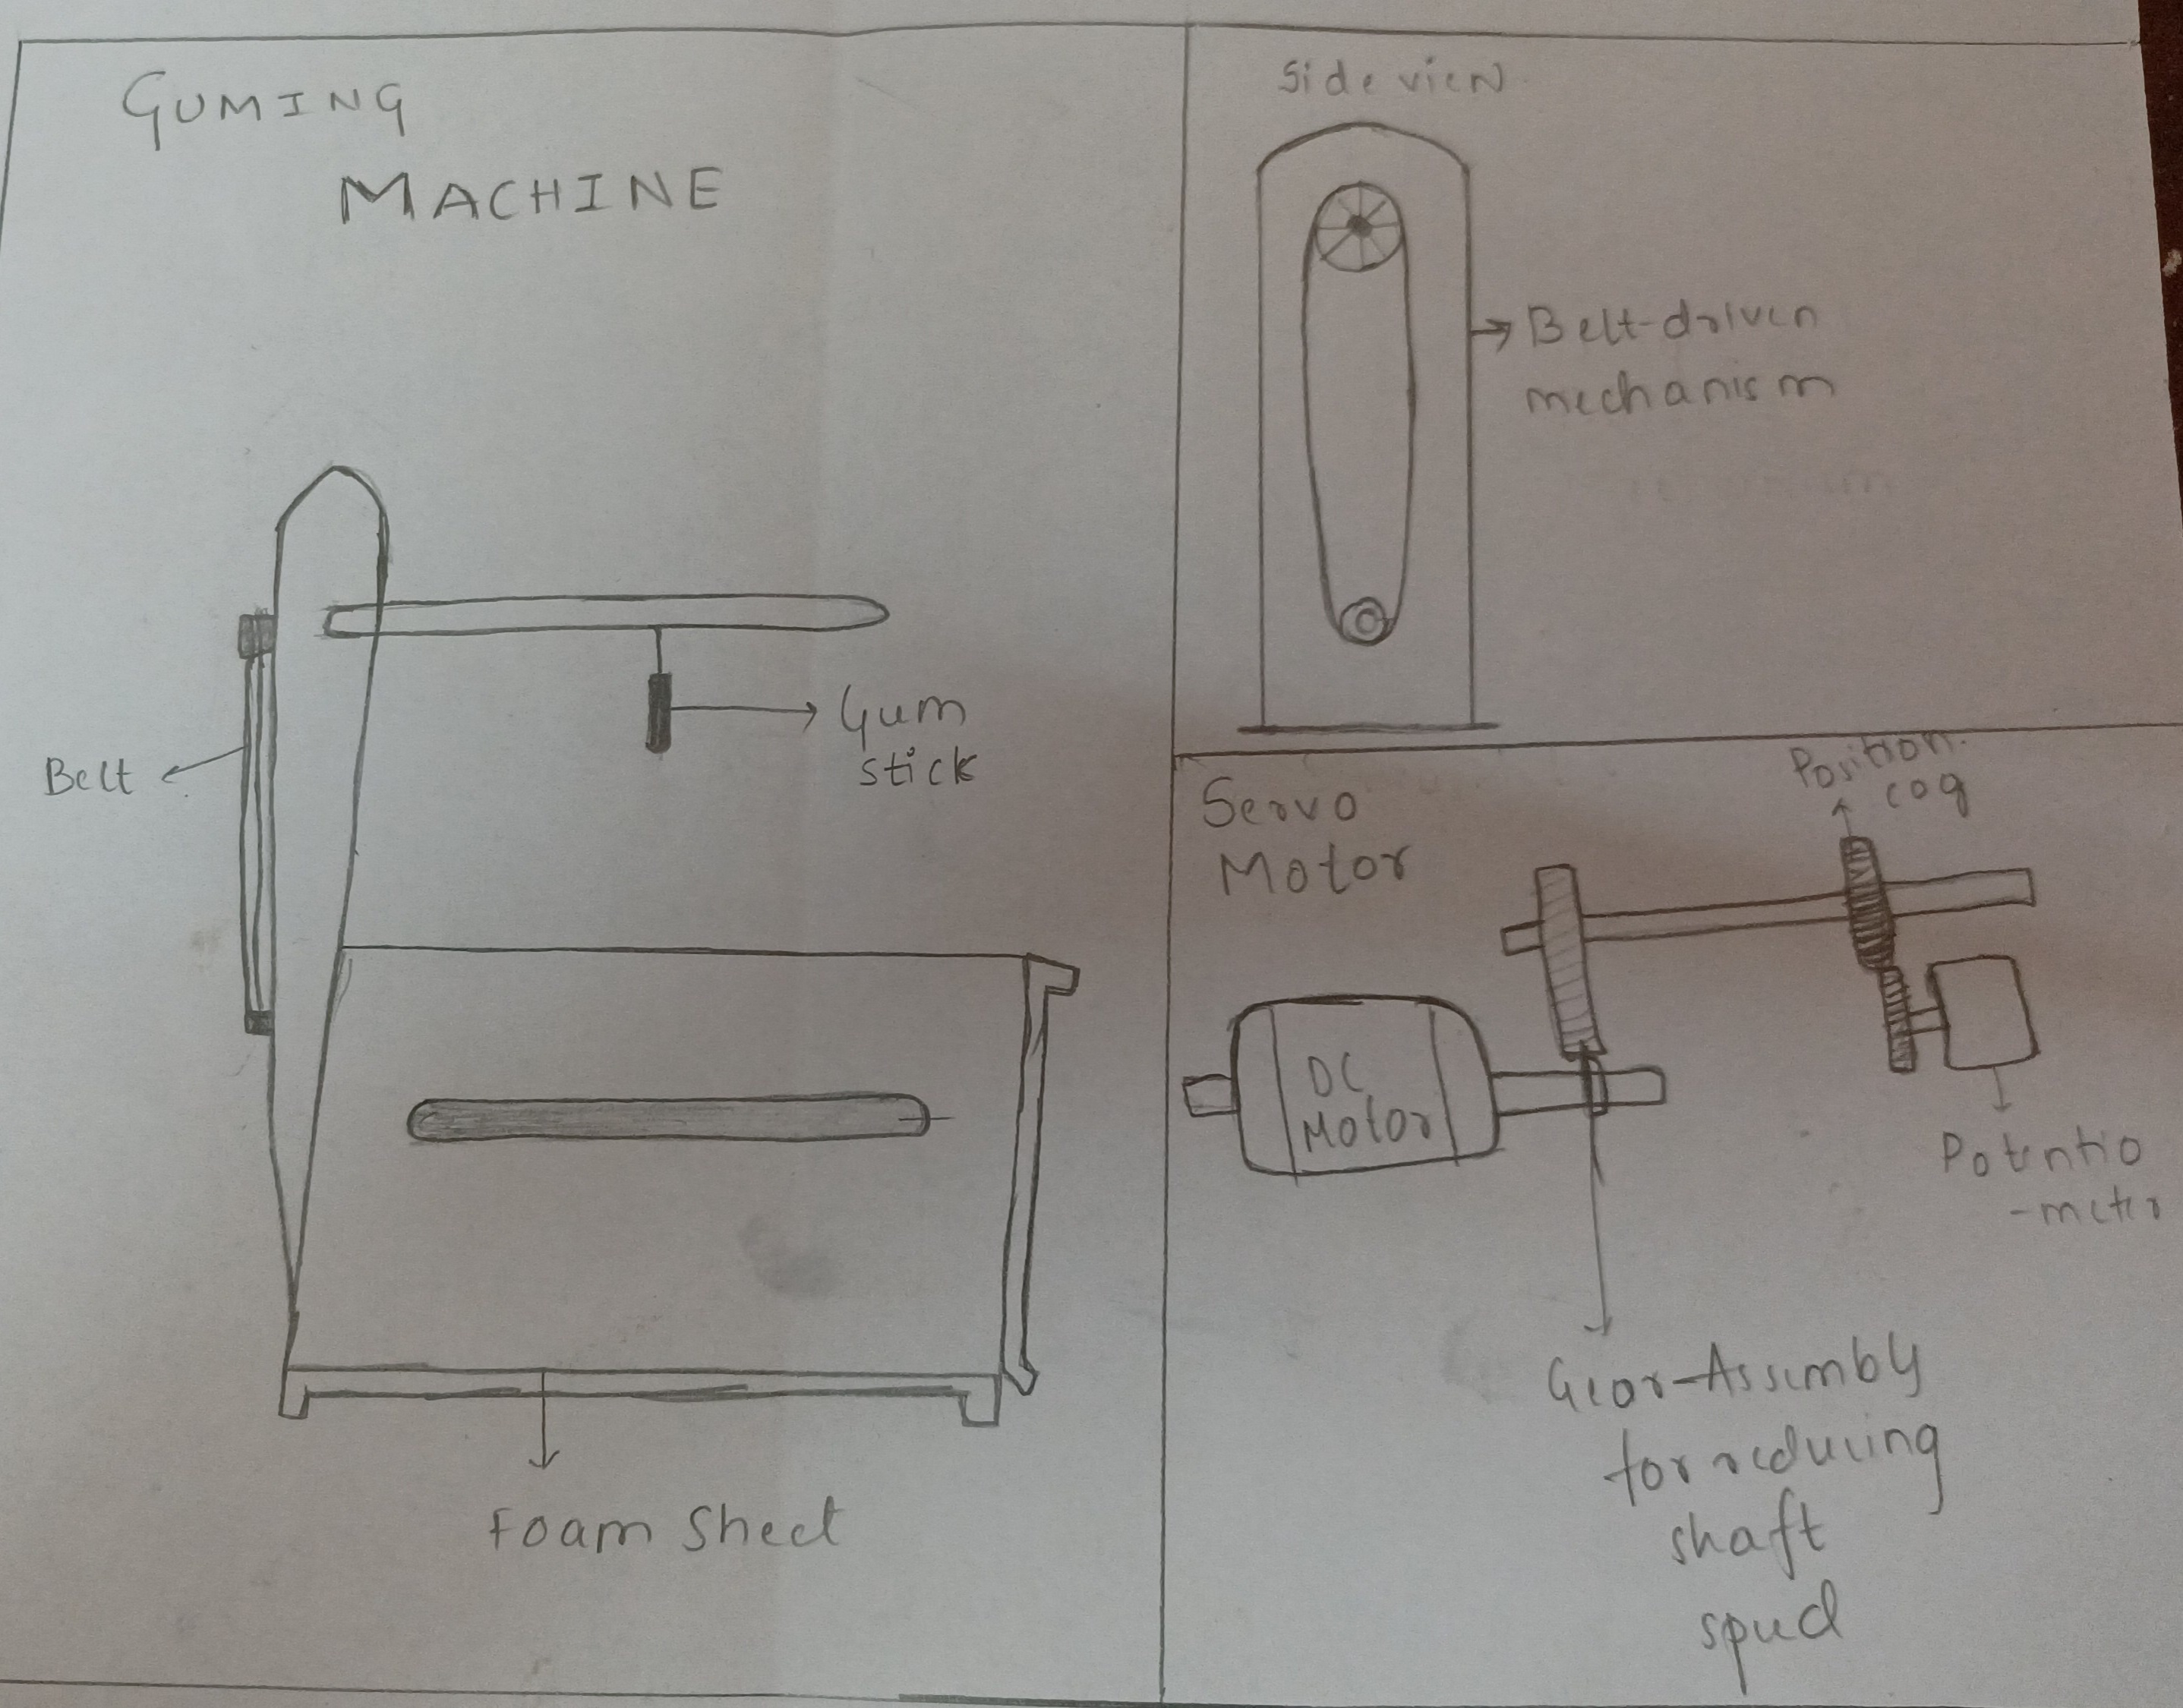 GUMING
MACHINE
Gum
stick
Belt
Foam Sheet
Side view
Belt-driven
mechanism
Servo
Motor
Position
cog
DC
Motor
Potentio
-meter
Gear-Assembly
for reducing
shaft
speed